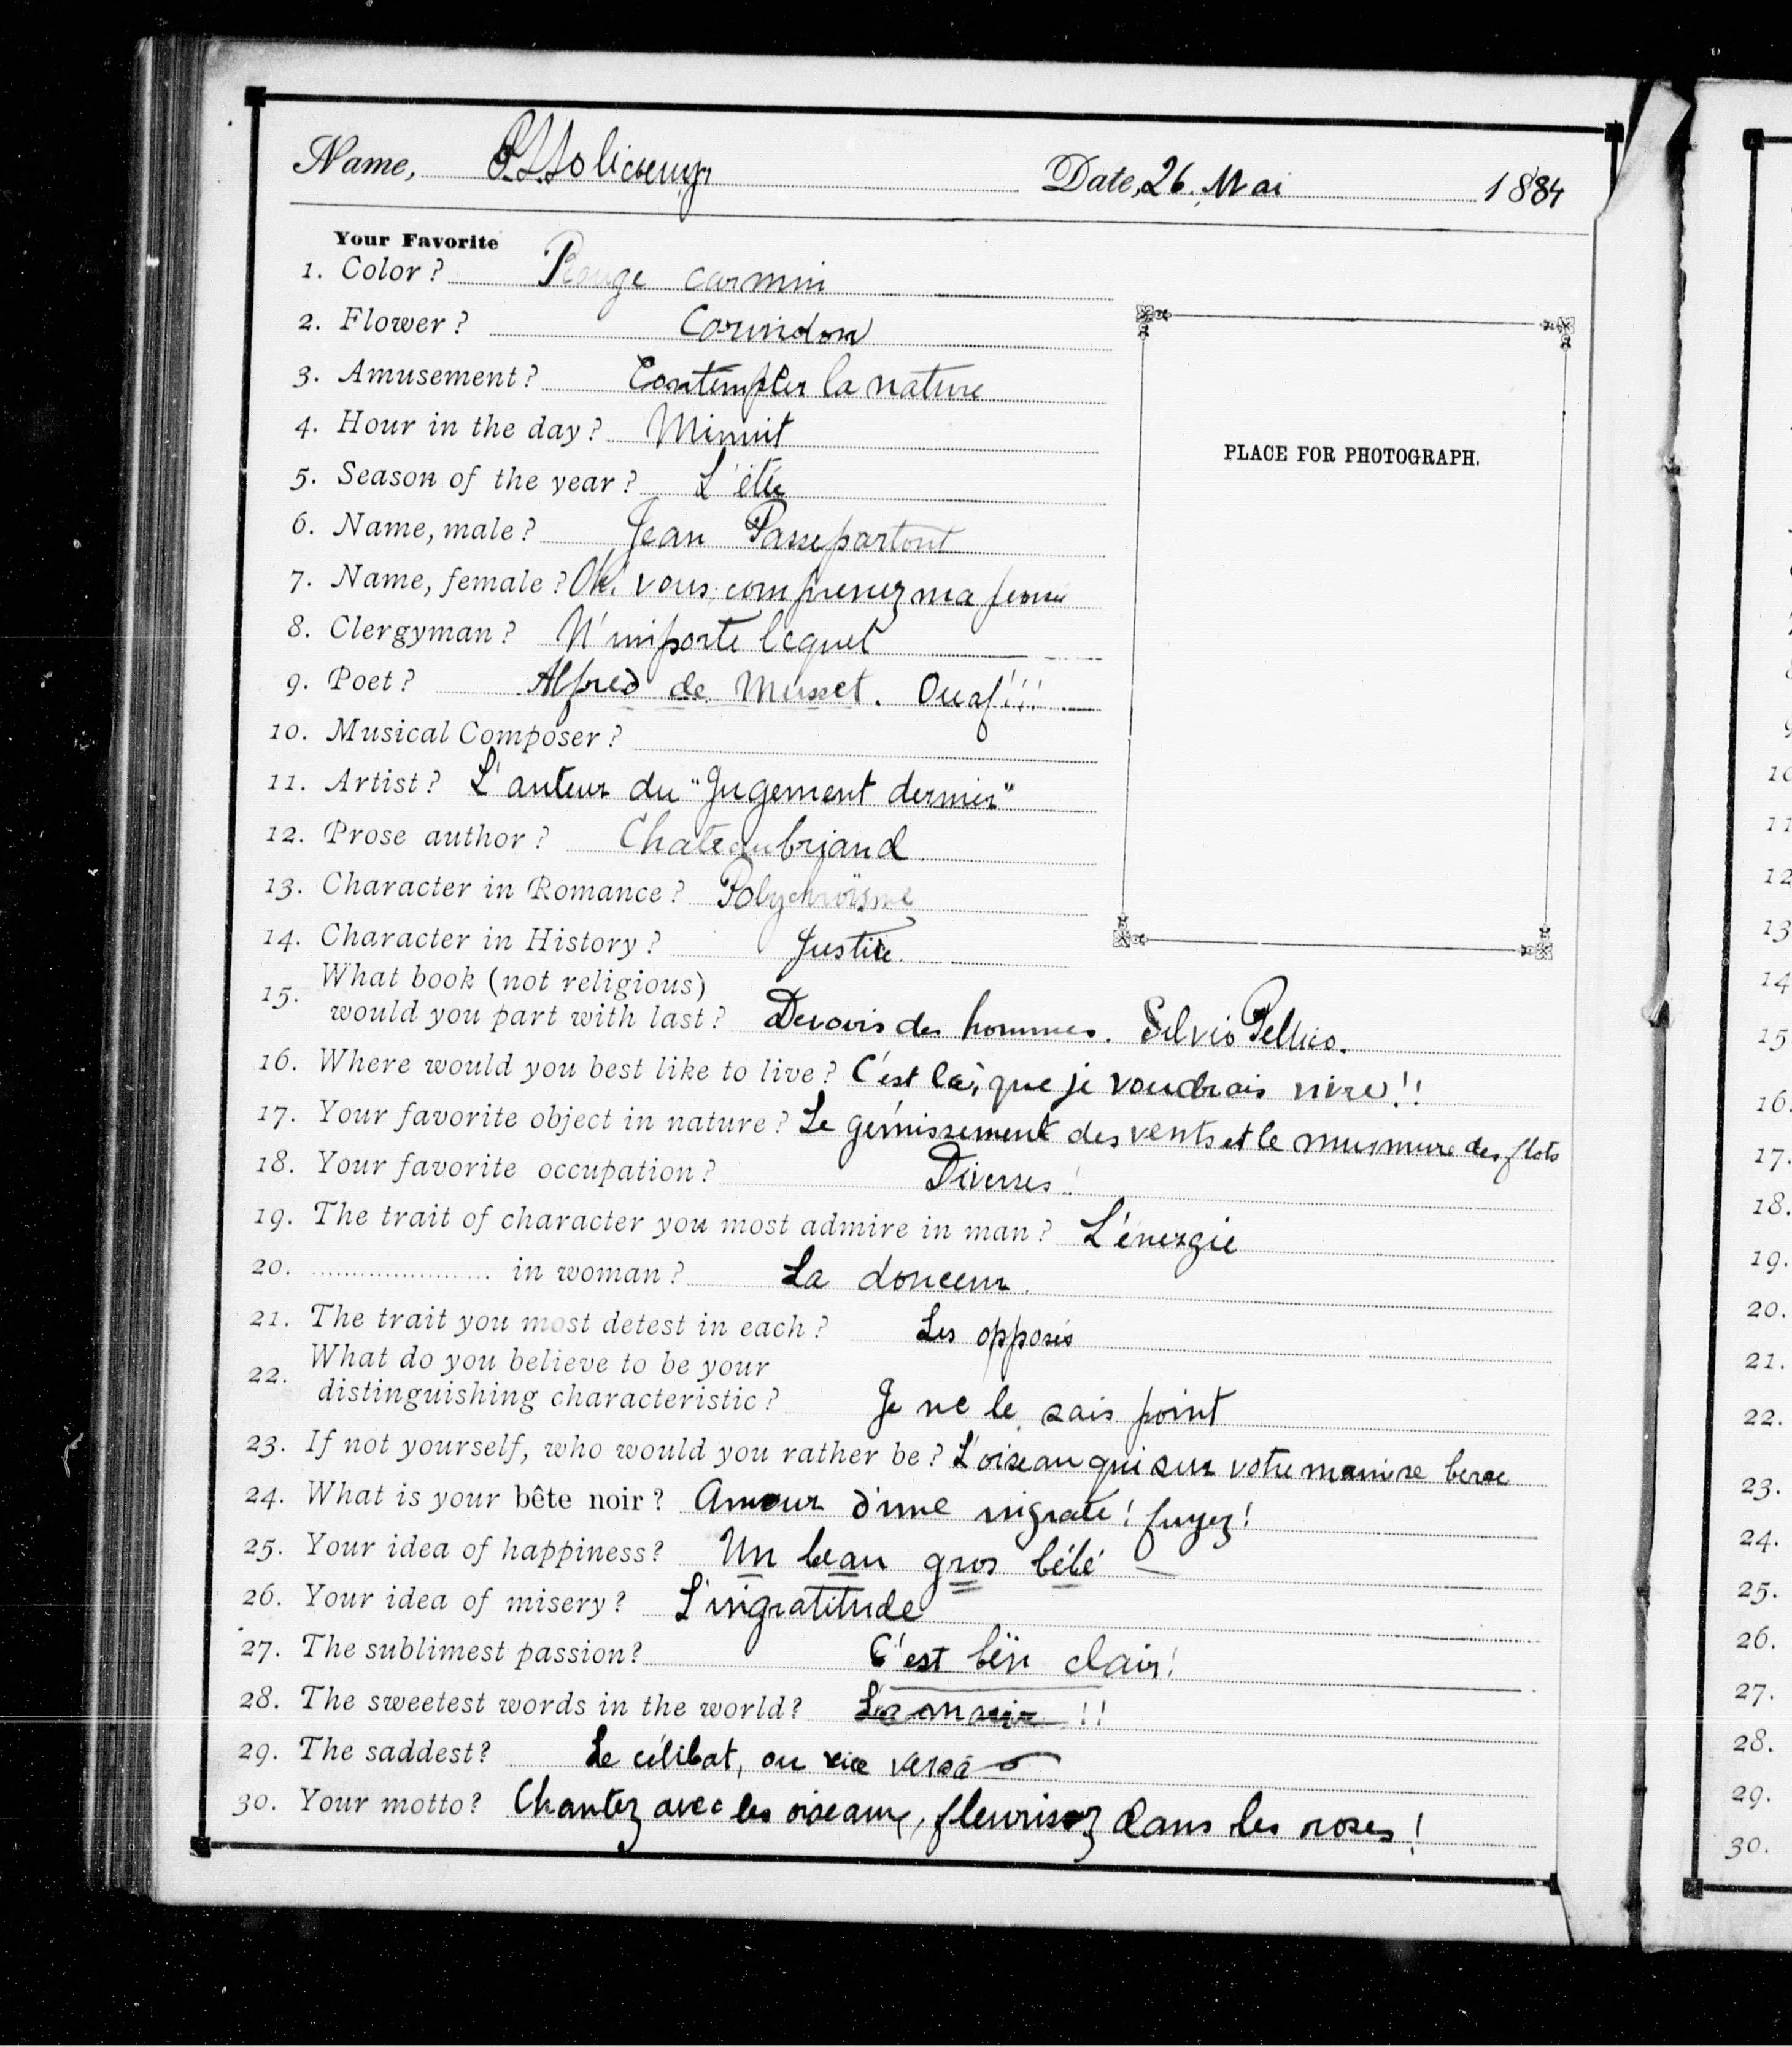 Name, Date, 26. Mai 1884
Your Favorite
1. Color? Rouge carmin
2. Flower? Corindon
3. Amusement? Contempler la nature
4. Hour in the day? Minuit
5. Season of the year? L'été
6. Name, male? Jean Passepartout
7. Name, female? Oh! vous comprenez ma femme
8. Clergyman? N'importe lequel
9. Poet? Alfred de Musset. Ouaf!!!
10. Musical Composer?
11. Artist? L'auteur du "Jugement dernier"
12. Prose author? Chateaubriand
13. Character in Romance? Polychroïsme
14. Character in History? Justice.
15. What book (not religious)
would you part with last? Devoirs des hommes. Silvio Pellico.
16. Where would you best like to live? C'est là, que je voudrais vivre!!
17. Your favorite object in nature? Le gémissement des vents et le murmure des flots
18. Your favorite occupation? Diverses!
19. The trait of character you most admire in man? L'énergie
20. in woman? La douceur.
21. The trait you most detest in each? Les opposés
22. What do you believe to be your
distinguishing characteristic? Je ne le sais point
23. If not yourself, who would you rather be? L'oiseau qui sur votre
24. What is your bête noir? Amour d'une ingrate! fuyez!
25. Your idea of happiness? Un beau gros bébé
26. Your idea of misery? L'ingratitude
27. The sublimest passion? C'est bien clair!
28. The sweetest words in the world? !!
29. The saddest? Le célibat, ou vice versa
30. Your motto? Chantez avec les oiseaux, fleurissez dans les roses!
PLACE FOR PHOTOGRAPH.
9
10
11
12
13
14
15
16.
17.
18.
19.
20.
21.
22.
23.
24.
25.
26.
27.
28.
29.
30.